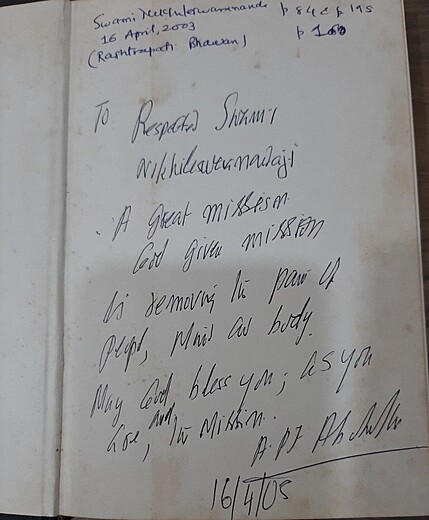 Swami Nikhileswarananda p 84 & p 195
16 April, 2003 p 100
(Rashtrapati Bhawan)
To Respected Swami
Nikhileswaranandaji
A great mission
God given mission
is removing the pain of
people, mind and body.
May God bless you, as you
are, and, the mission.
A. PJ Abdul
16/4/03